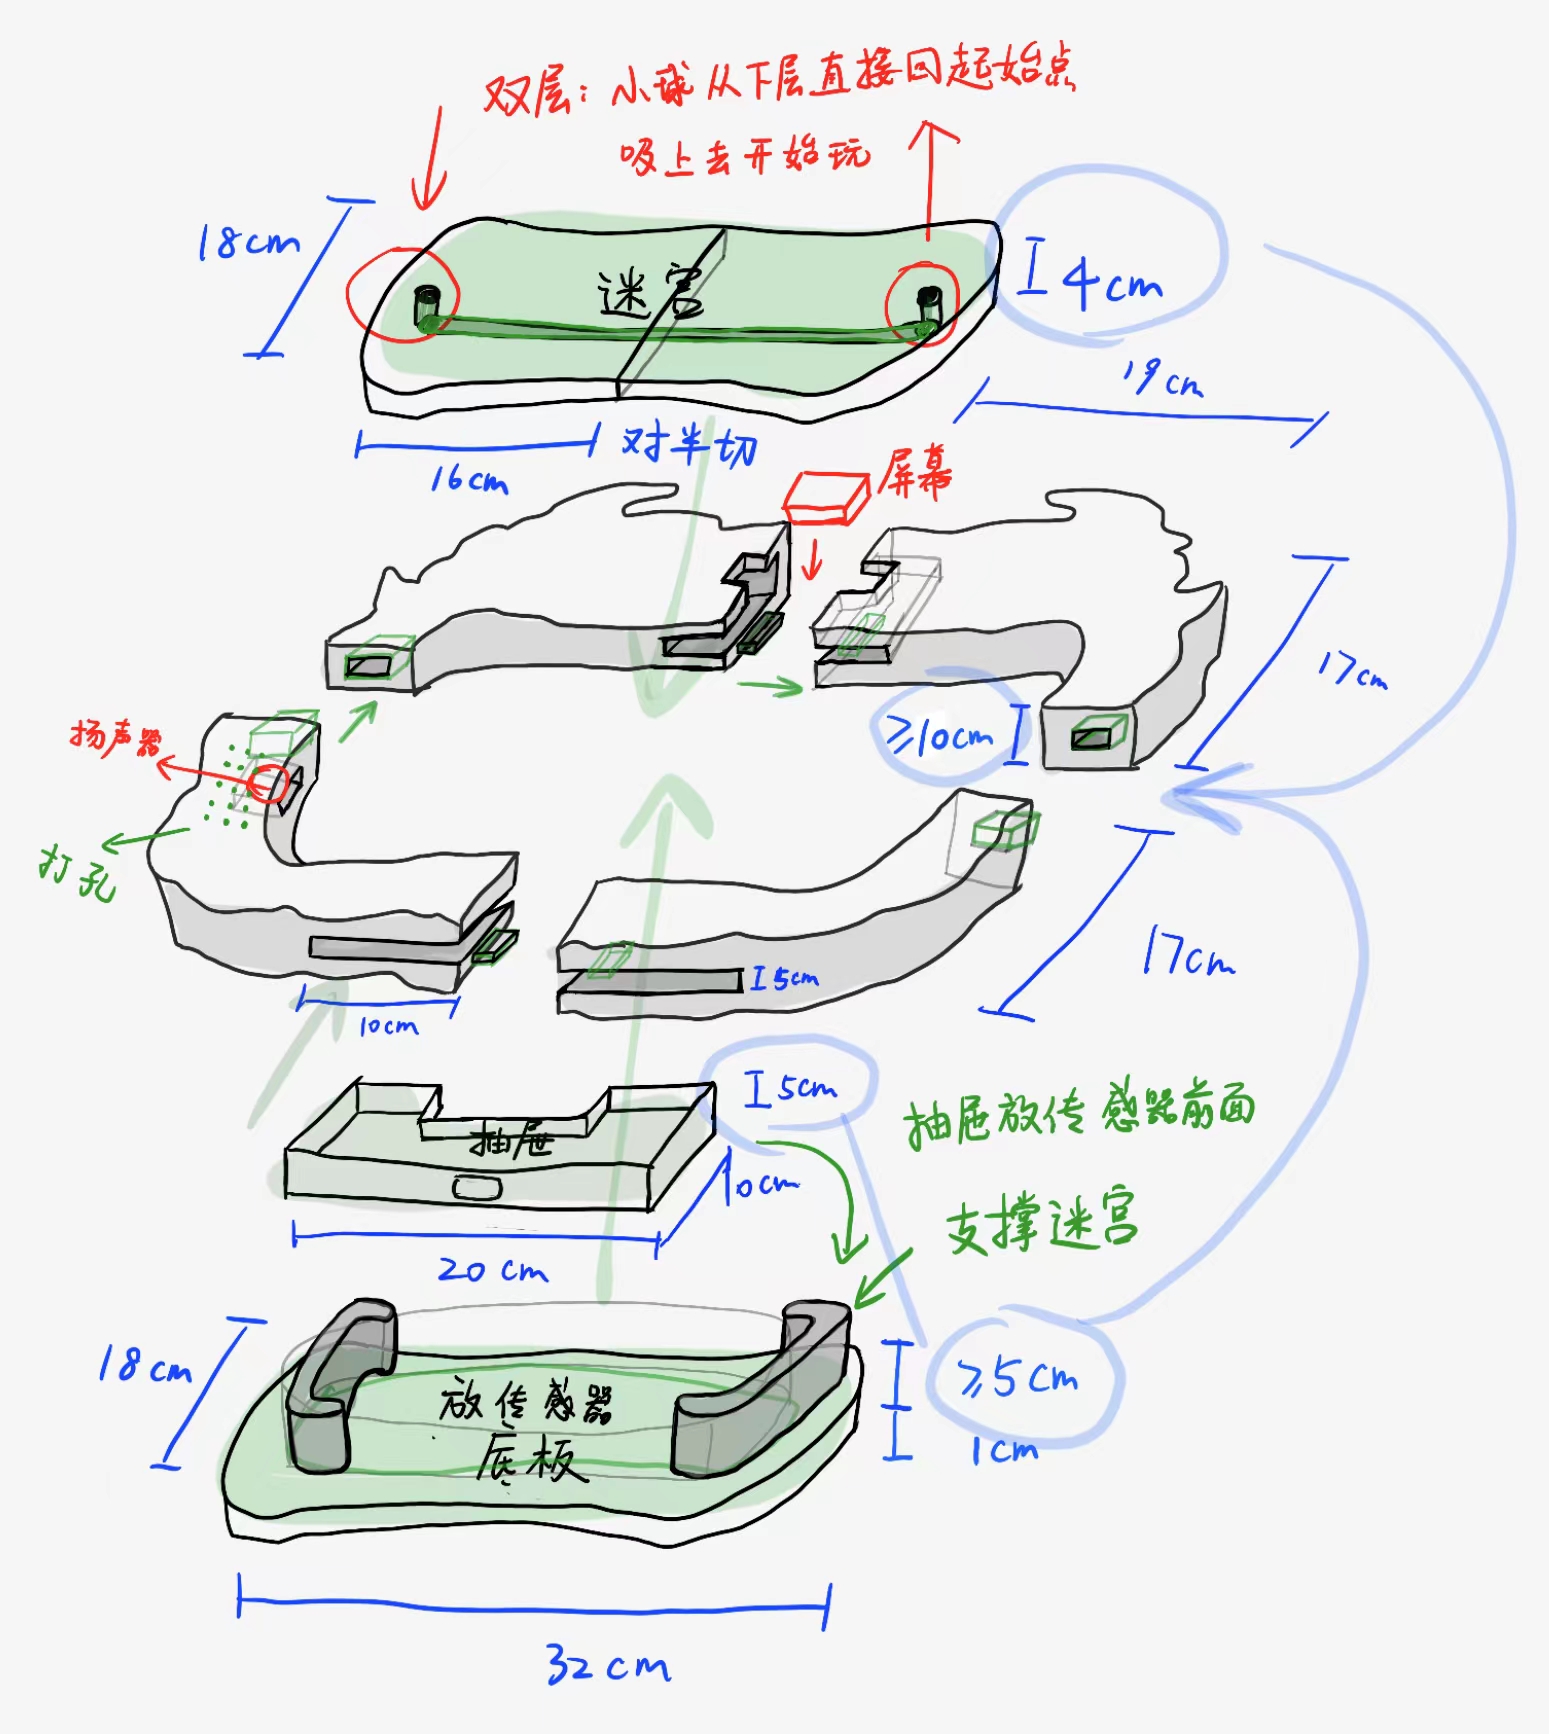 双层：小球从下层直接回起始点
吸上去开始玩
18cm
迷宫
4cm
19cm
16cm
对半切
屏幕
17cm
≥10cm
扬声器
打孔
17cm
5cm
10cm
5cm
抽屉放传感器前面
抽屉
10cm
支撑迷宫
20cm
18cm
放传感器
底板
≥5cm
1cm
32cm